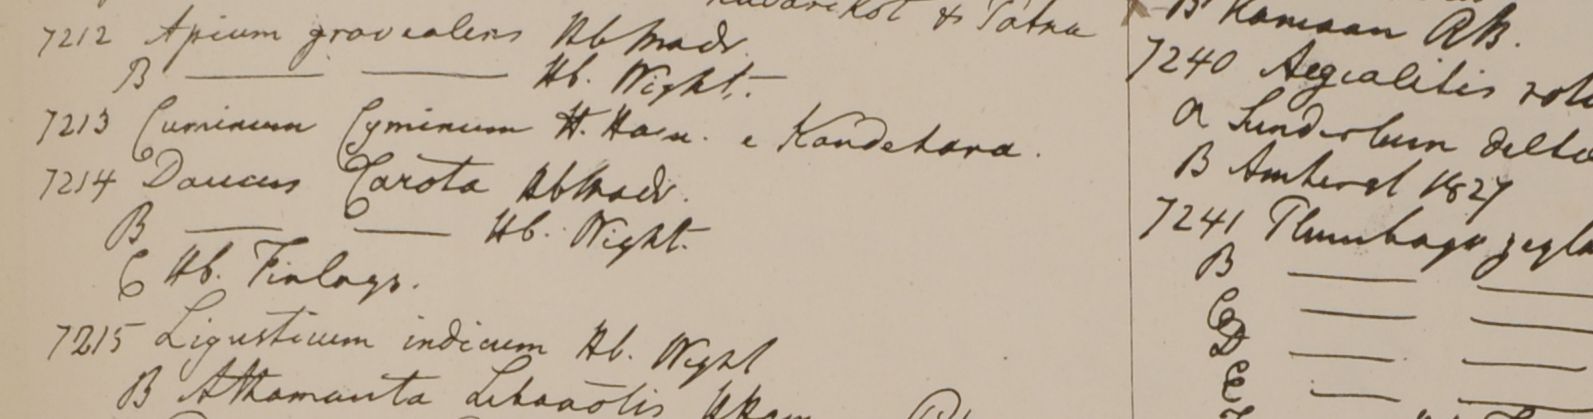 & Patna
7212 Apium graveolens Hb Madr.
B — — Hb. Wight.
7213 Cuminum Cyminum H. Ham. e Kandehara.
7214 Daucus Carota Hb Madr.
B — — Hb. Wight.
C Hb. Finlays.
7215 Ligusticum indicum Hb. Wight
B Athamanta Libanotis HHam
B Kamaon RB.
7240 Aegialitis rotu
a Sunderbun delta
B Amherst 1827
7241 Plumbago zeyla
B — —
C — —
D — —
E — —